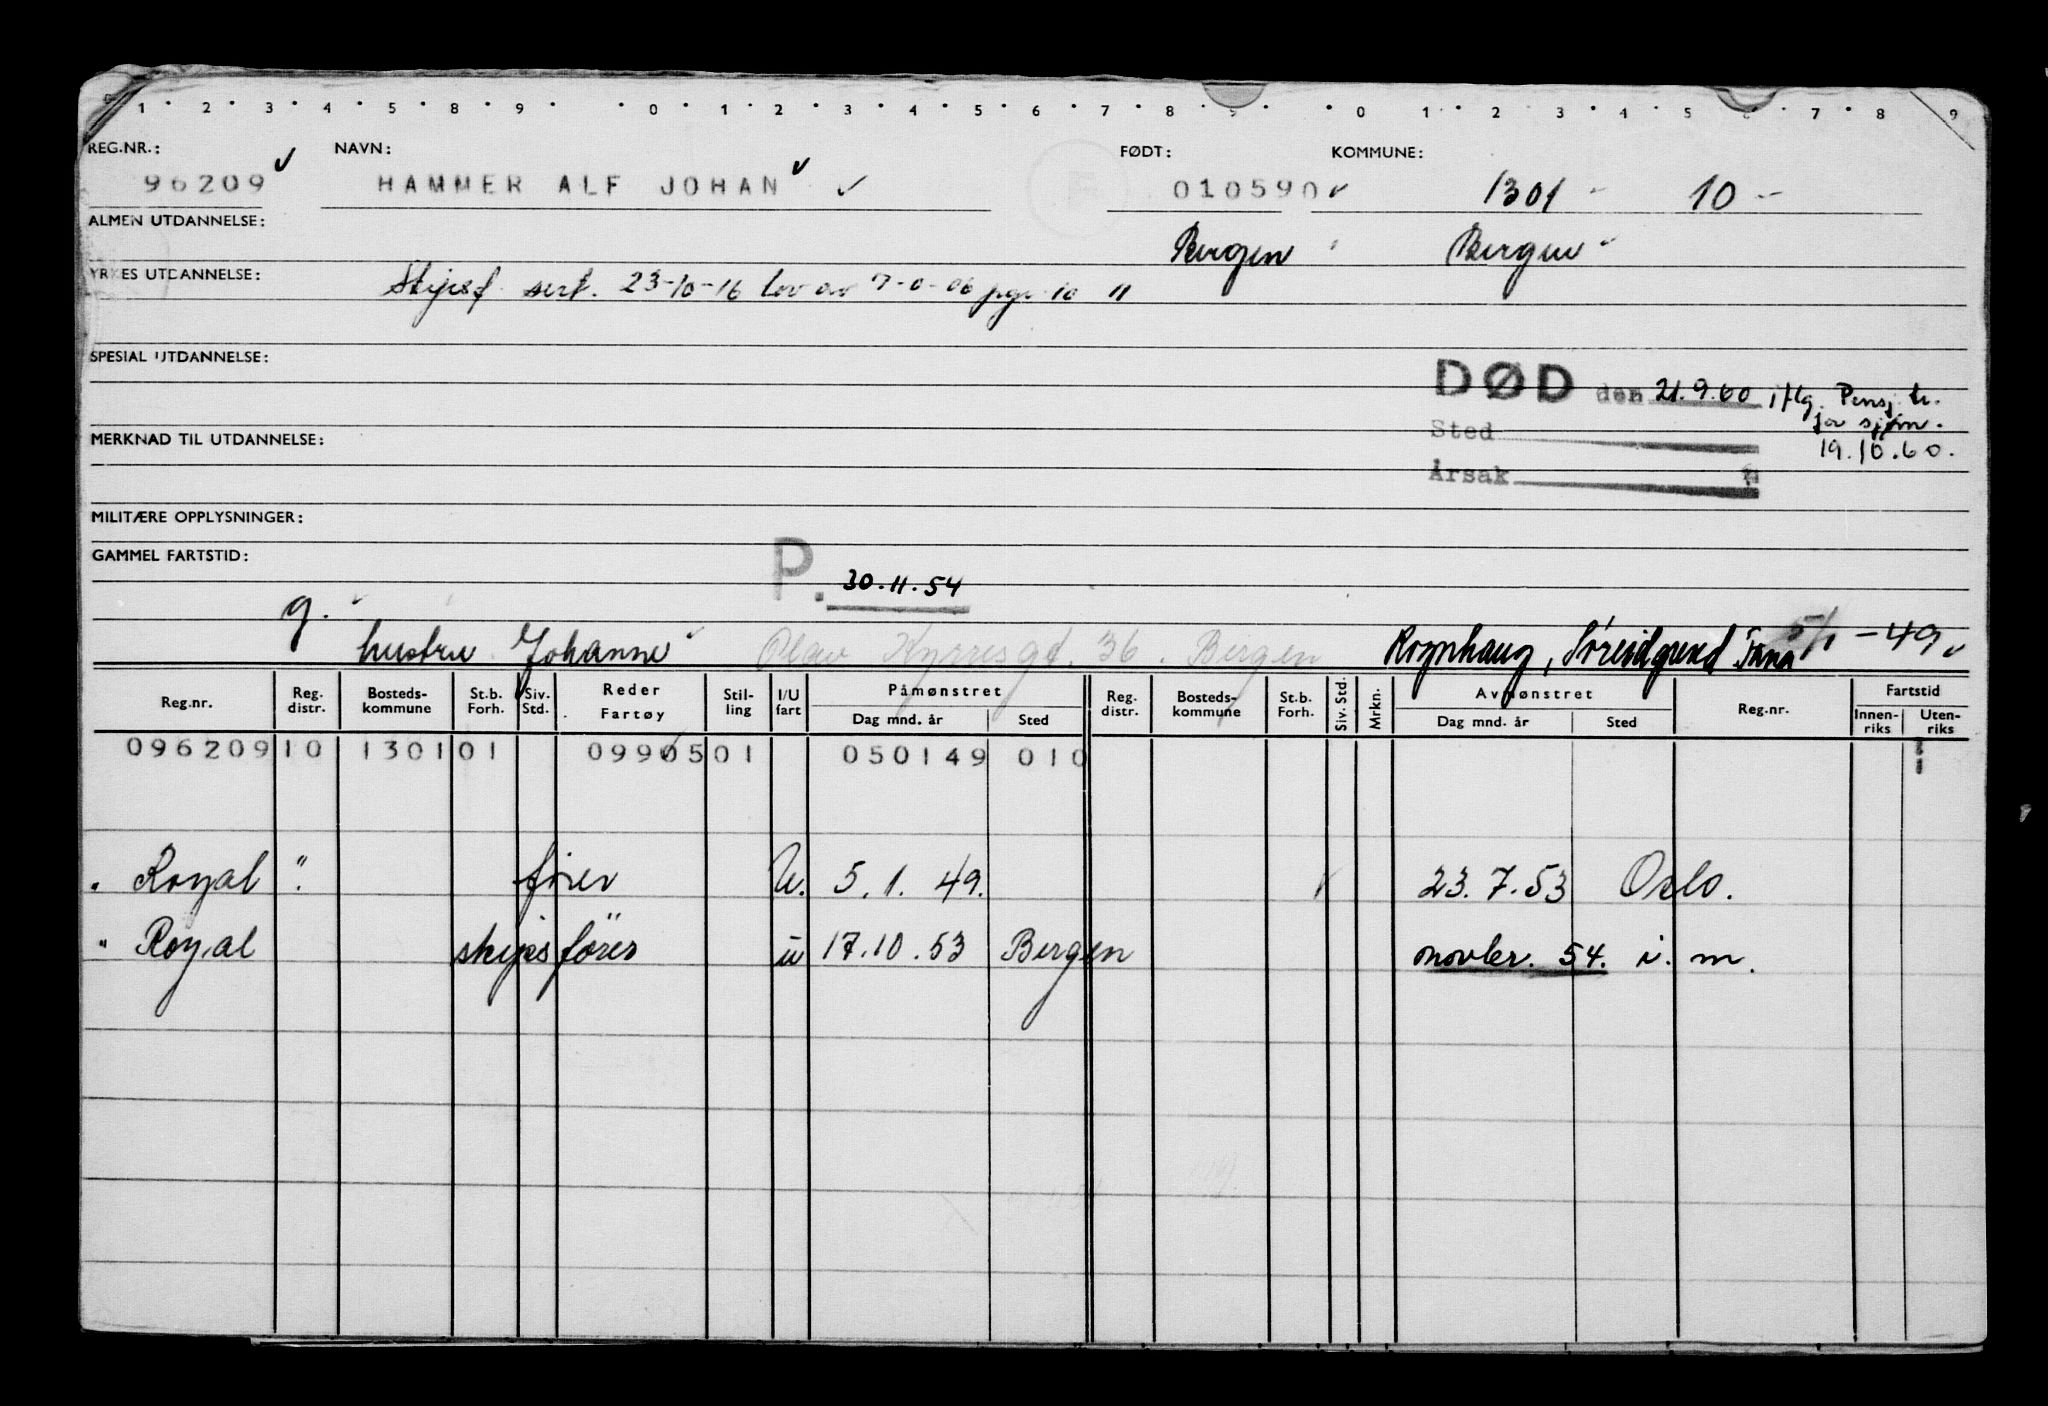 1 2 3 4 5 8 9 0 1 2 3 4 5 6 7 8 9 0 1 2 3 4 5 6 7 8 9
REG.NR.: NAVN: FØDT: KOMMUNE:
96209 HAMMER ALF JOHAN 010590 1301 - 10 -
ALMEN UTDANNELSE:
Bergen Bergen
YRKES UTDANNELSE:
Skipsf sert. 23-10-16 Lov av 10 11
SPESIAL UTDANNELSE:
DØD den 21.9.60 iflg. Pensj.tr.
for sjøm.
MERKNAD TIL UTDANNELSE: Sted
19.10.60.
Årsak
MILITÆRE OPPLYSNINGER:
GAMMEL FARTSTID:
P. 30.11.54
g.
hustru Johanne Olav Kyrresgt. 36. Bergen Søreidgrend Fana 5/1 - 49
Reg.nr. Reg. distr. Bosteds-kommune St.b. Forh. Siv. Std. Reder Fartøy Stil-ling I/U fart Påmønstret Dag mnd. år Sted Reg. distr. Bosteds-kommune St.b. Forh. Siv. Std. Mrkn. Avmønstret Dag mnd. år Sted Reg.nr. Fartstid Innen-riks Uten-riks
096209 10 1301 01 09905 01 050149 010
" Royal " fører U. 5. 1. 49. 23. 7. 53 Oslo.
" Royal skipsfører u 17.10.53 Bergen novbr. 54. i. m.